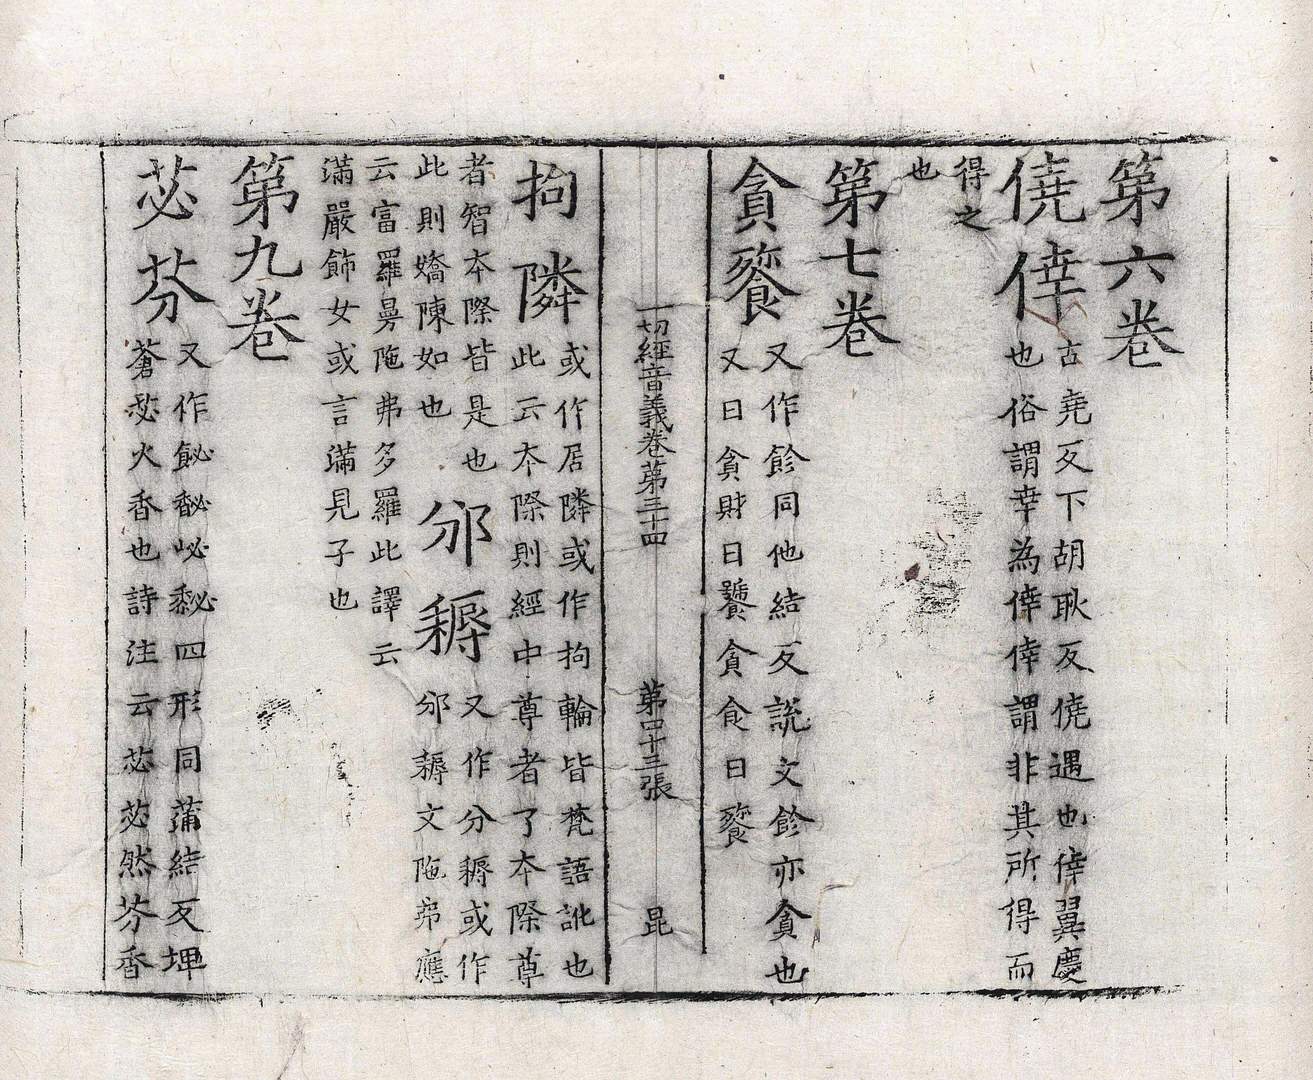 第六卷
僥倖
古堯反下胡耿反僥遇也倖翼慶
也俗謂幸為倖倖謂非其所得而
得之
也
第七卷
貪餮
又作飻同他結反說文飻亦貪也
又曰貪財曰饕貪食曰餮
一切經音義卷第三十四 第四十三張 昆
拘隣
或作居隣或作拘輪皆梵語訛也
此云本際則經中尊者了本際尊
者智本際皆是也
此則嬌陳如也
邠耨
又作分耨或作
邠耨文陁弗應
云富羅曼陁弗多羅此譯云
滿嚴飾女或言滿見子也
第九卷
苾芬
又作飶䭱䎵馝四形同蒲結反埤
蒼苾火香也詩注云苾苾然芬香